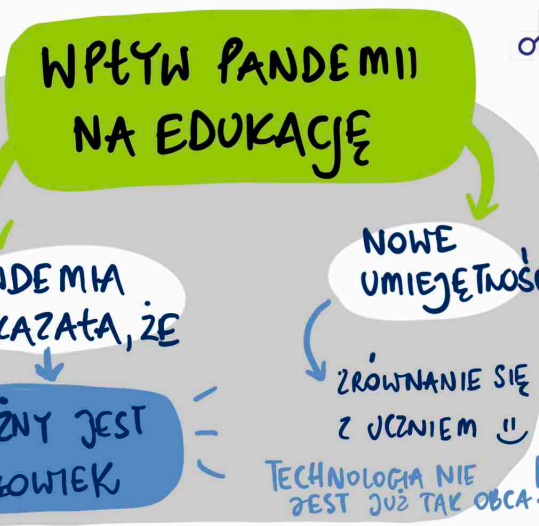 WPŁYW PANDEMII
NA EDUKACJĘ
NDEMIA
KAZAŁA, ŻE
ŻNY JEST
ŁOWIEK
NOWE
UMIEJĘTNOŚC
ZRÓWNANIE SIĘ
Z UCZNIEM
TECHNOLOGIA NIE
JEST JUŻ TAK OBCA